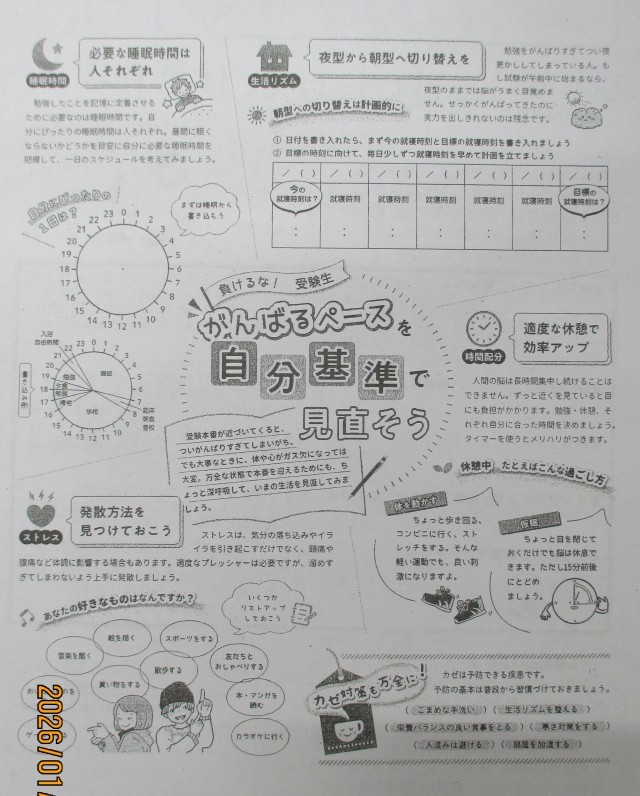 睡眠時間
必要な睡眠時間は
人それぞれ
勉強したことを記憶に定着させる
ために必要なのは睡眠時間です。自
分にぴったりの睡眠時間は人それぞれ。昼間に眠く
ならないかどうかを目安に自分に必要な睡眠時間を
把握して、一日のスケジュールを考えてみましょう。
自分にぴったりの
1日は?
まずは睡眠から
書き込もう
0 1 2 3 4 5 6 7 8 9 10 11 12 13 14 15 16 17 18 19 20 21 22 23
生活リズム
夜型から朝型へ切り替えを
勉強をがんばりすぎてつい夜
更かししてしまっている人。も
し試験が午前中に始まるなら、
夜型のままでは脳がうまく目覚めま
せん。せっかくがんばってきたのに
実力を出しきれないのは残念です。
朝型への切り替えは計画的に
① 日付を書き入れたら、まず今の就寝時刻と目標の就寝時刻を書き入れましょう
② 目標の時刻に向けて、毎日少しずつ就寝時刻を早めて計画を立てましょう
/ ( ) / ( ) / ( ) / ( ) / ( ) / ( ) / ( )
今の
就寝時刻は?
就寝時刻
就寝時刻
就寝時刻
就寝時刻
就寝時刻
目標の
就寝時刻は?
: : : : : : :
負けるな! 受験生
がんばるペースを
自分基準で
見直そう
受験本番が近づいてくると、
ついがんばりすぎてしまいがち。
でも大事なときに、体や心がガス欠になっては
大変。万全な状態で本番を迎えるためにも、ち
ょっと深呼吸して、いまの生活を見直してみま
しょう。
入浴
自由時間
0 1 2 3 4 5 6 7 8 9 10 11 12 13 14 15 16 17 18 19 20 21 22 23
睡眠
勉強
夕食
勉強
帰宅
学校
起床
朝食
登校
時間配分
適度な休憩で
効率アップ
人間の脳は長時間集中し続けることは
できません。ずっと近くを見ていると目
にも負担がかかります。勉強・休憩、そ
れぞれ自分に合った時間を決めましょう。
タイマーを使うとメリハリがつきます。
休憩中 たとえばこんな過ごし方
体を動かす
ちょっと歩き回る、
コンビニに行く、スト
レッチをする。そんな
軽い運動でも、良い刺
激になりますよ。
仮眠
ちょっと目を閉じて
おくだけでも脳は休息で
きます。ただし15分前後
にとどめ
ましょう。
ストレス
発散方法を
見つけておこう
ストレスは、気分の落ち込みやイラ
イラを引き起こすだけでなく、頭痛や
腹痛など体調に影響する場合もあります。適度なプレッシャーは必要ですが、溜めす
ぎてしまわないよう上手に発散しましょう。
あなたの好きなものはなんですか?
いくつか
リストアップ
しておこう
音楽を聞く
絵を描く
スポーツをする
買い物をする
散歩する
友だちと
おしゃべりする
本・マンガを
読む
カラオケに行く
カゼ対策も万全に!
カゼは予防できる疾患です。
予防の基本は普段から習慣づけておきましょう。
(こまめな手洗い) (生活リズムを整える)
(栄養バランスの良い食事をとる) (寒さ対策をする)
(人混みは避ける) (部屋を加湿する)
2026/01/